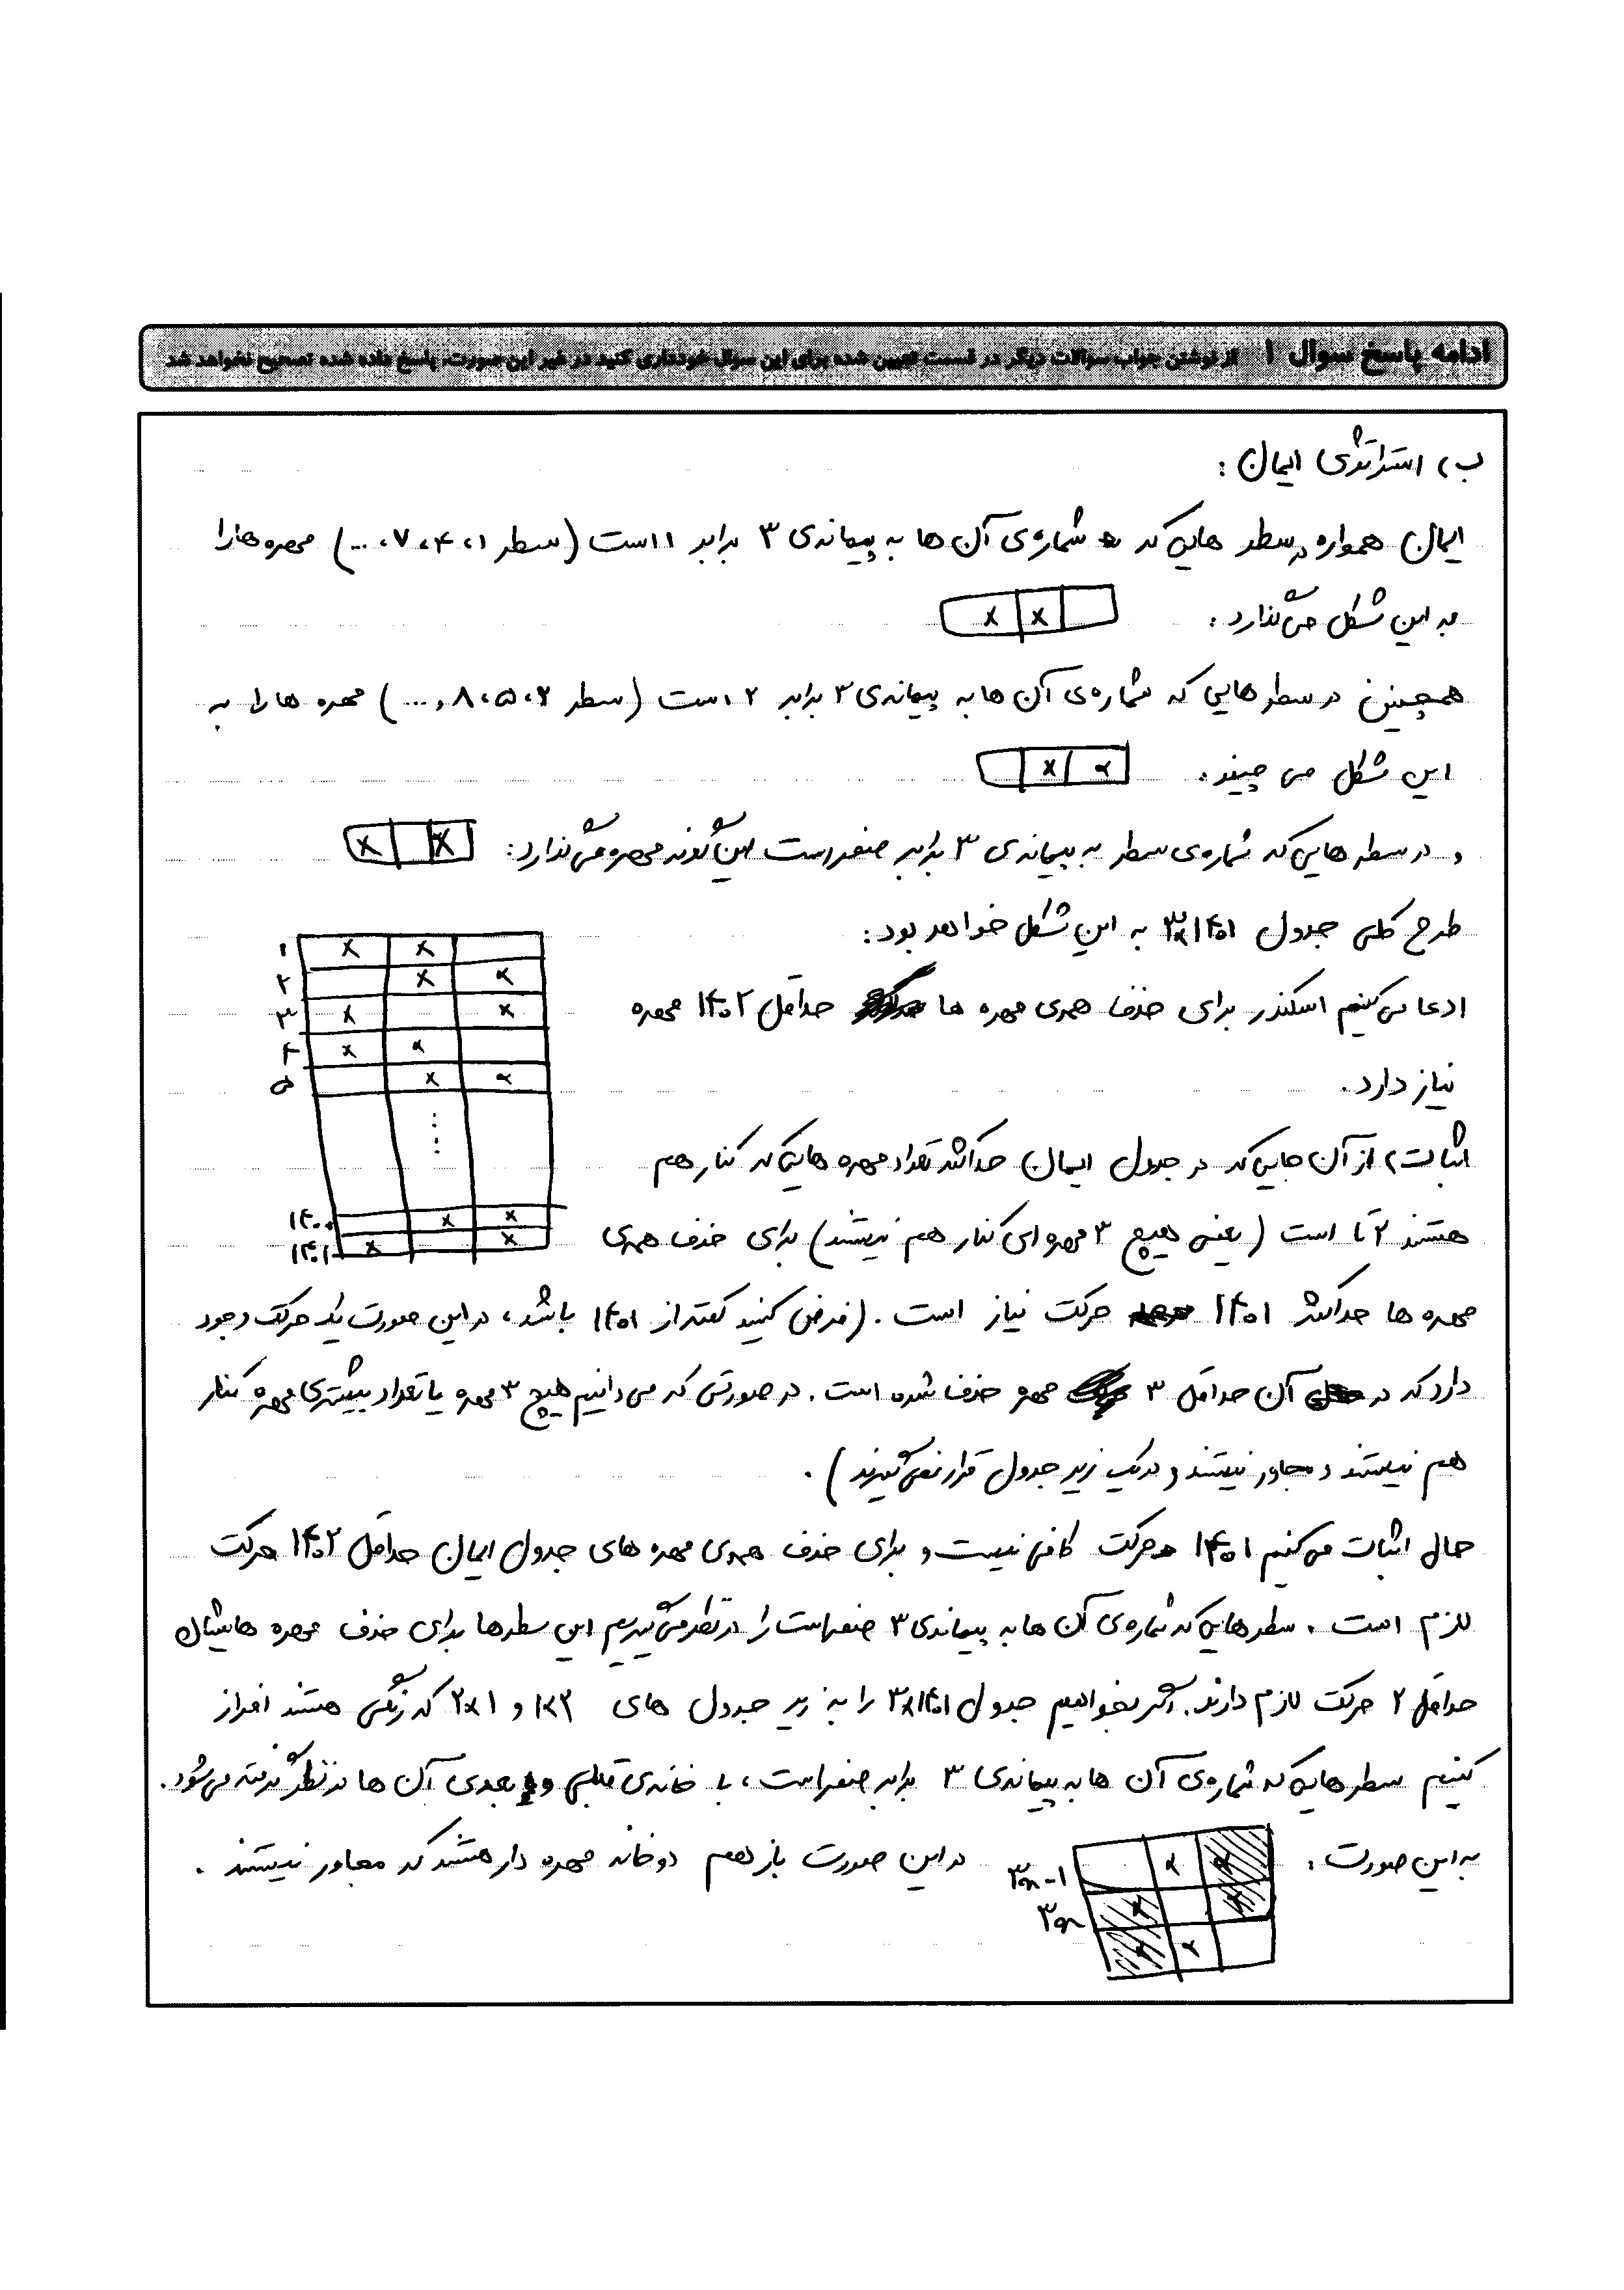 ادامه پاسخ سوال ۱ از نوشتن جواب سوالات دیگر در قسمت تعیین شده برای این سوال خودداری کنید در غیر این صورت، پاسخ داده شده تصحیح نخواهد شد
ب) استراتژی ایمان :
ایمان همواره در سطر هایی که شماره‌ی آن ها به پیمانه‌ی ۳ برابر ۱ است (سطر ۱، ۴، ۷، ...) مهره ها را
به این شکل می‌گذارد : x x
همچنین در سطر هایی که شماره‌ی آن ها به پیمانه‌ی ۳ برابر ۲ است (سطر ۲، ۵، ۸، ...) مهره ها را به
این شکل می چیند . x x
و در سطر هایی که شماره‌ی سطر به پیمانه‌ی ۳ برابر صفر است این گونه مهره می‌گذارد : x x
طرح کلی جدول ۳×۱۴۰۱ به این شکل خواهد بود :
۱ x x
۲ x x
۳ x x
۴ x x
۵ x x
۱۴۰۰ x x
۱۴۰۱ x x
ادعا می‌کنیم اسکندر برای حذف همه‌ی مهره ها حداقل ۱۴۰۲ مهره
نیاز دارد .
اثبات) از آن جایی که در جدول ایمان حداکثر تعداد مهره هایی که کنار هم
هستند ۲ تا است (یعنی هیچ ۳ مهره ای کنار هم نیستند) برای حذف همه‌ی
مهره ها حداکثر ۱۴۰۱ حرکت نیاز است . (فرض کنید کمتر از ۱۴۰۱ باشد، در این صورت یک حرکت وجود
دارد که در آن حداقل ۳ مهره حذف شده است . در صورتی که می دانیم هیچ ۳ مهره یا تعداد بیشتری مهره کنار
هم نیستند و مجاور نیستند و در یک زیر جدول قرار نمی‌گیرند ) .
حال اثبات می‌کنیم ۱۴۰۱ حرکت کافی نیست و برای حذف همه‌ی مهره های جدول ایمان حداقل ۱۴۰۲ حرکت
لازم است . سطر هایی که شماره‌ی آن ها به پیمانه‌ی ۳ صفر است را در نظر می‌گیریم این سطرها برای حذف مهره هایشان
حداقل ۲ حرکت لازم دارند . اگر بخواهیم جدول ۳×۱۴۰۱ را به زیر جدول های ۱×۲ و ۲×۱ که رنگی هستند افراز
کنیم سطر هایی که شماره‌ی آن ها به پیمانه‌ی ۳ برابر صفر است، با خانه‌ی قبلی و بعدی آن ها در نظر گرفته می‌شود .
به این صورت : ۳n-۱ ۳n در این صورت باز هم دو خانه مهره دار هستند که مجاور نیستند .